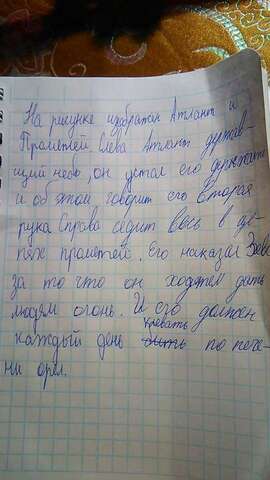 На рисунке изображен Атлант и
Прометей. Слева Атлант держав-
щий небо, он устал его держать
и об этом говорит его вторая
рука Справа сидит Весь в це-
пях прометей. Его наказал Зевс
за то что он ходател дать
людям огонь. И его должен
клевать
каждый день бить по пече-
ни орел.